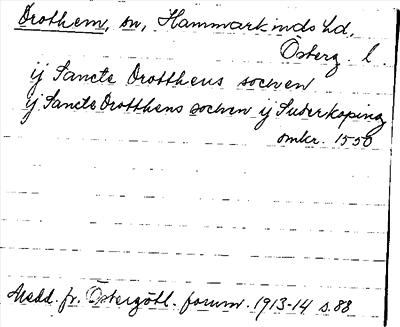 Drothem, sn, Hammarkinds hd,
Österg. l.
ij Sancte Drottheus socken
ij Sancte Drotthens socken ij Suderkoping
omkr. 1550
Medd. fr. Östergötl. fornm. 1913-14 s. 88